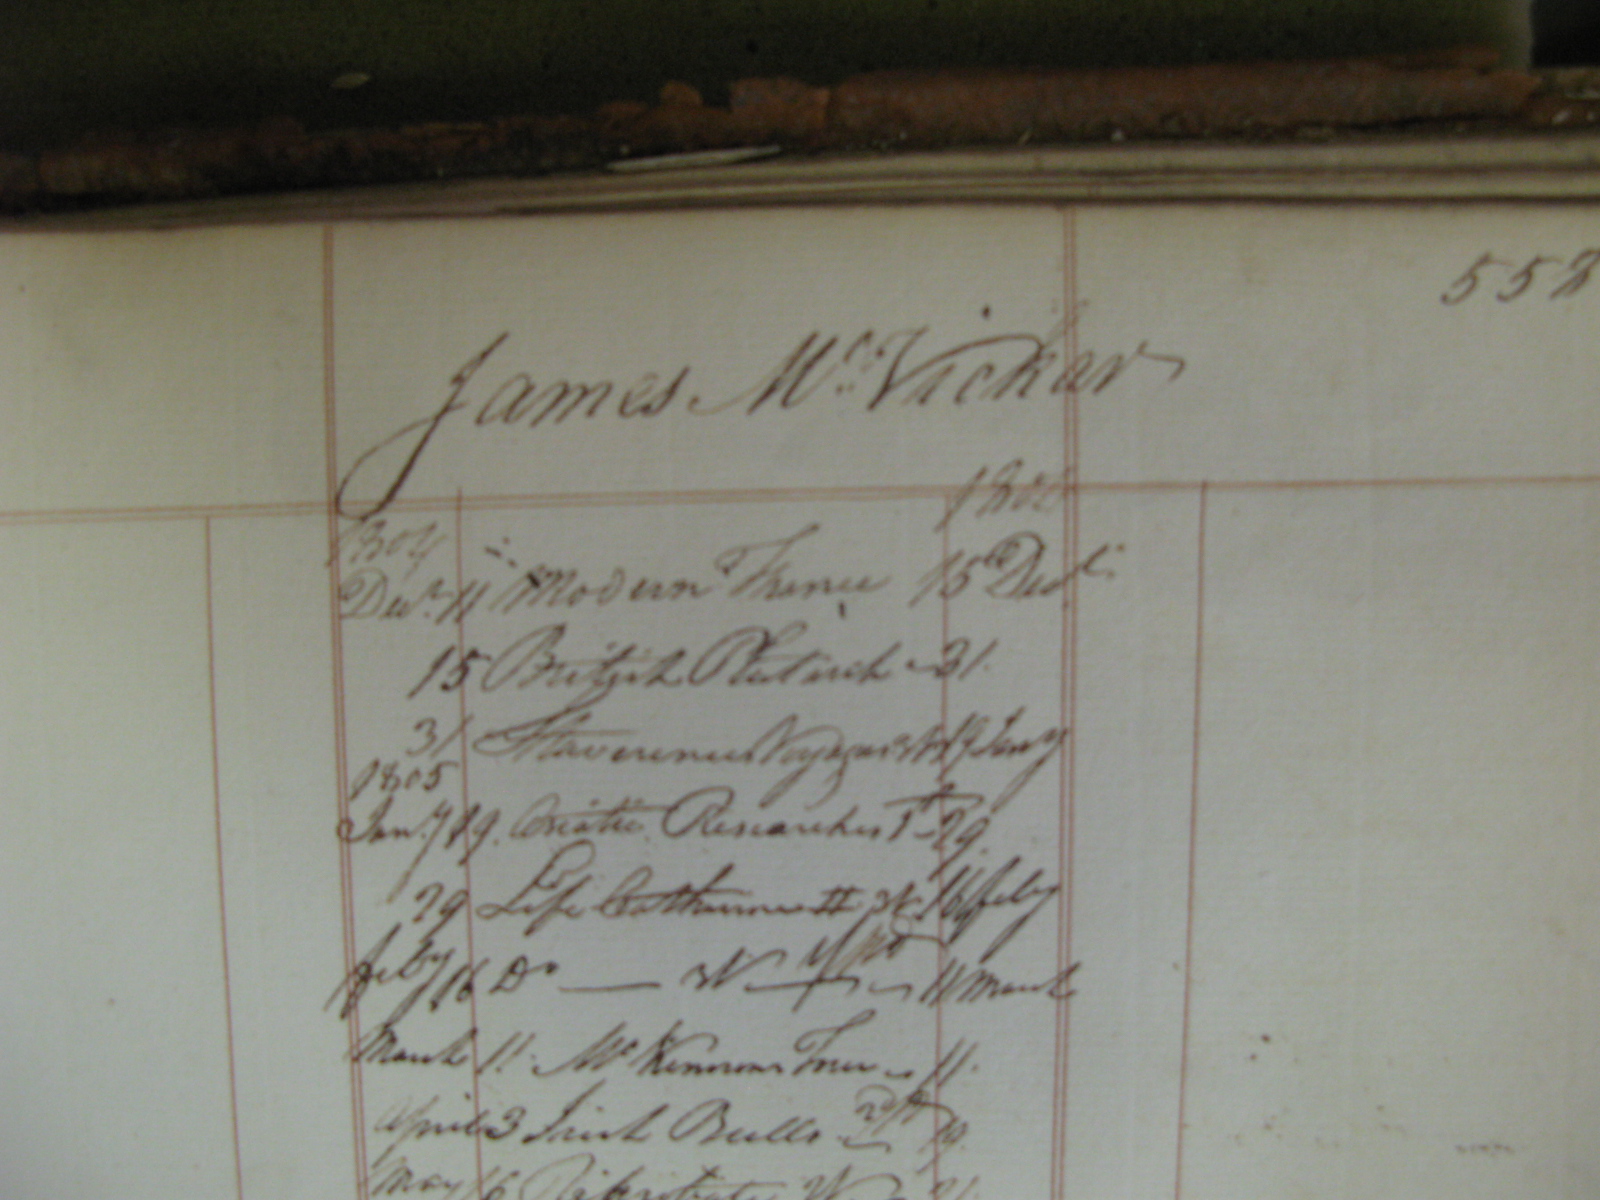 552
James McVickar
1804
Decr. 11 Modern France 15 Decr.
15 British Plutarch 31
31 Stavorinus Voyages W 19 Jany
1805
Jany 19 Asiatic Researches 1st 29
29 Life Catharine II W 16 feby
feby 16 Do — W 11 March
March 11 McKinnons Tour 11
April 3 Irish Bulls 19
May 16 W 21